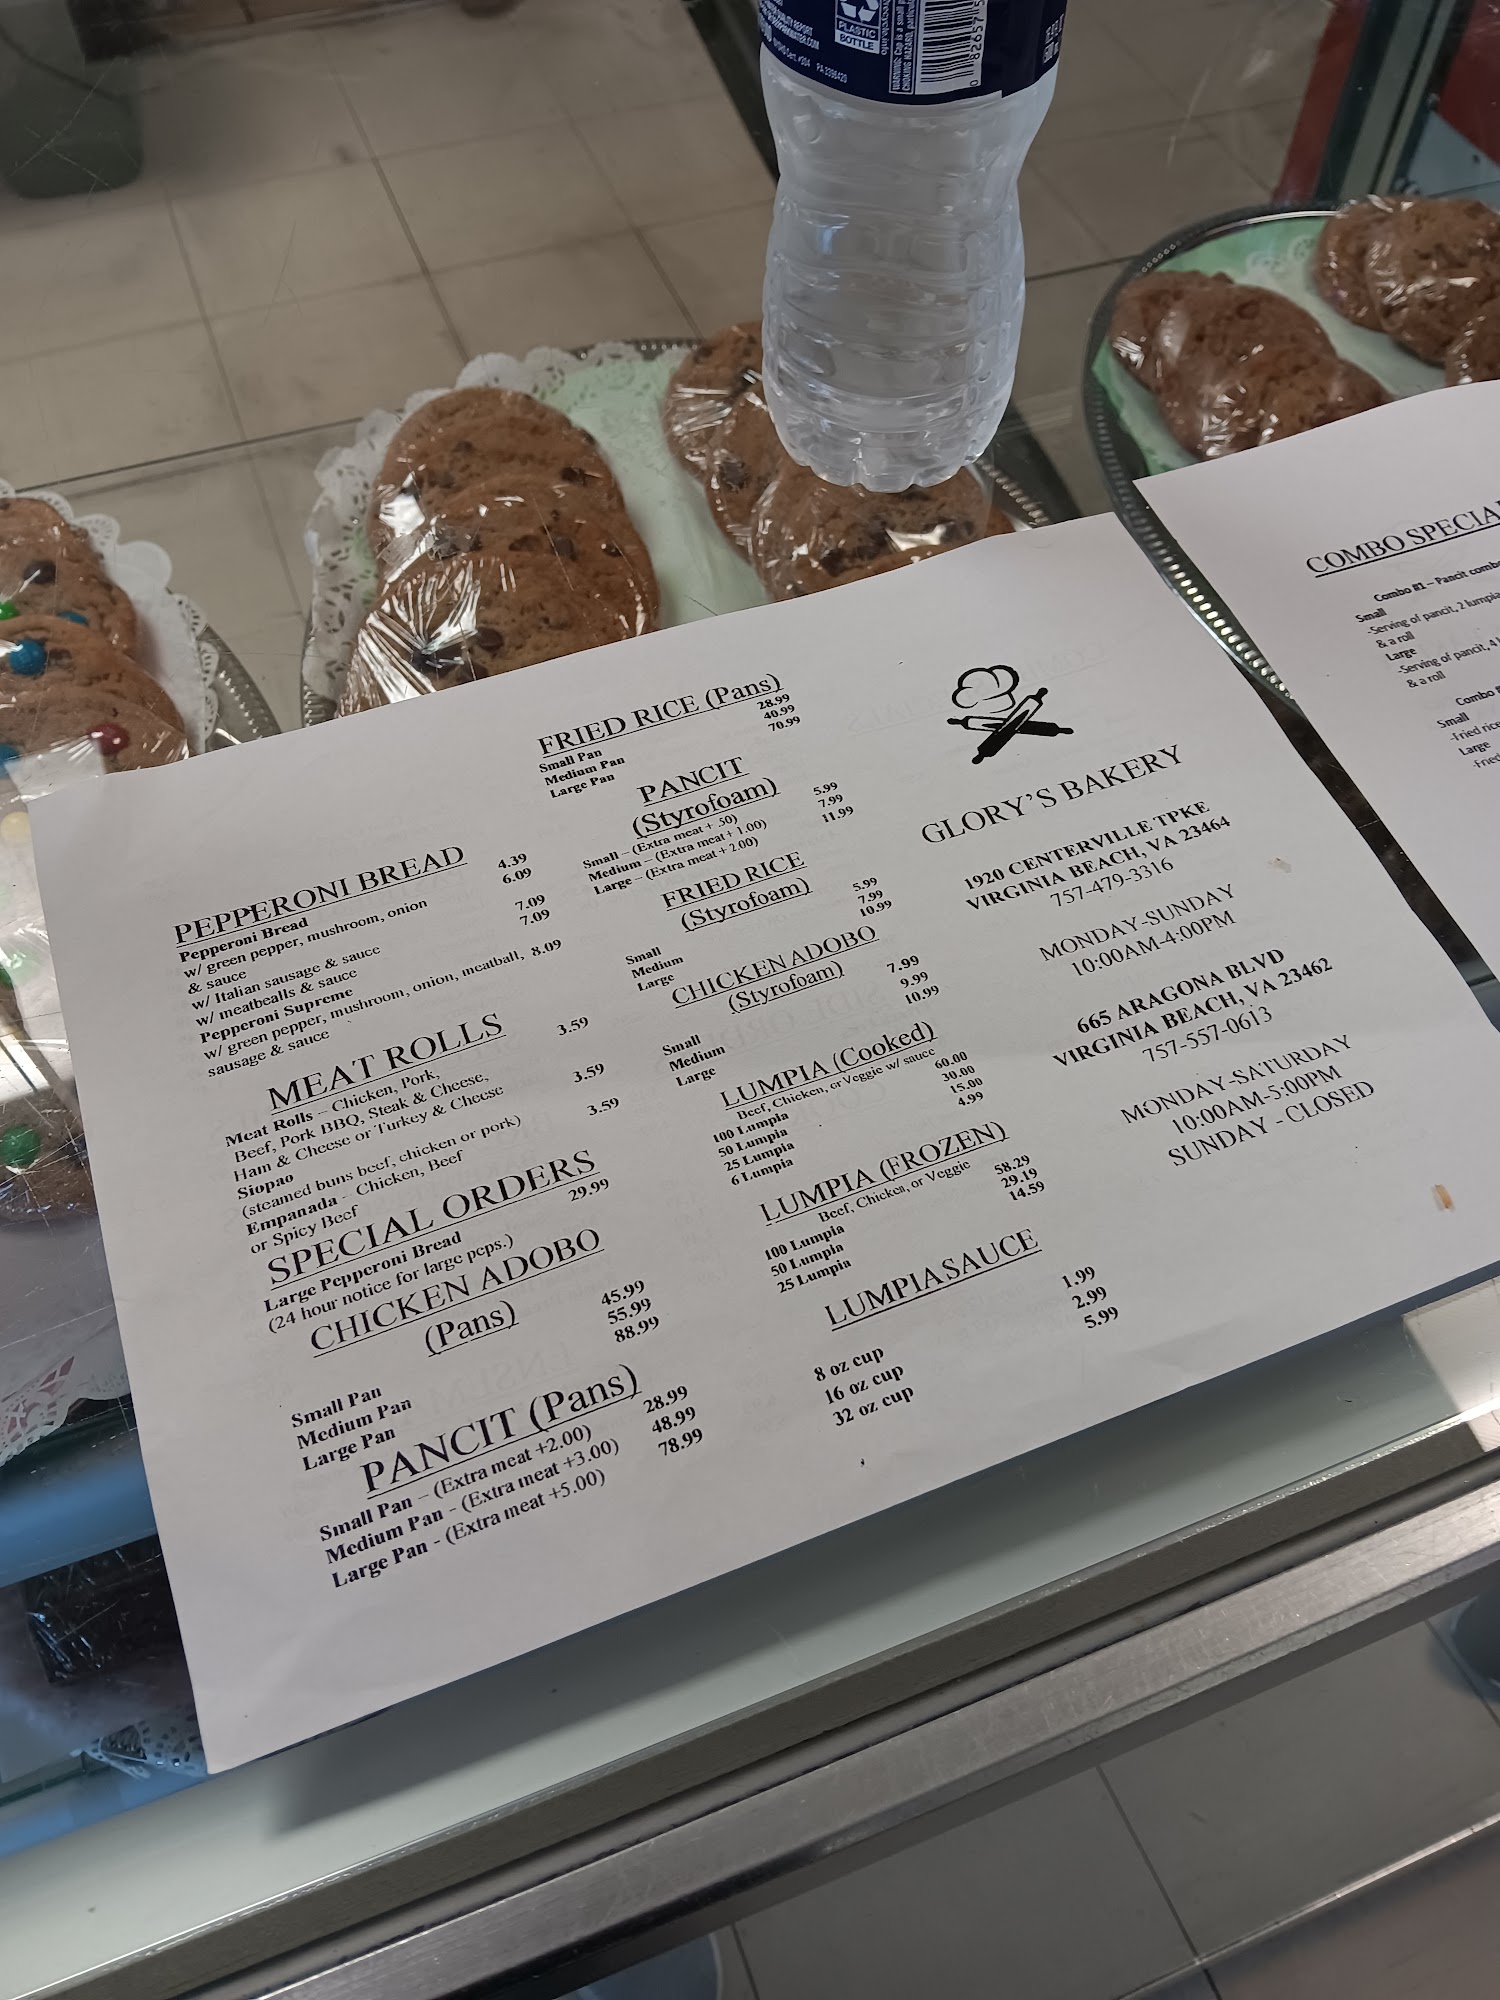 QUALITY REPORT
PLASTIC
BOTTLE
WARNING: Cap is a small part
CHOKING HAZARD
PA 3396420
0 82657 5
PEPPERONI BREAD
Pepperoni Bread 4.39
w/ green pepper, mushroom, onion 6.09
& sauce
w/ Italian sausage & sauce 7.09
w/ meatbealls & sauce 7.09
Pepperoni Supreme
w/ green pepper, mushroom, onion, meatball, 8.09
sausage & sauce
MEAT ROLLS
Meat Rolls – Chicken, Pork, 3.59
Beef, Pork BBQ, Steak & Cheese,
Ham & Cheese or Turkey & Cheese
Siopao 3.59
(steamed buns beef, chicken or pork)
Empanada - Chicken, Beef 3.59
or Spicy Beef
SPECIAL ORDERS
Large Pepperoni Bread 29.99
(24 hour notice for large peps.)
CHICKEN ADOBO
(Pans)
Small Pan 45.99
Medium Pan 55.99
Large Pan 88.99
PANCIT (Pans)
Small Pan – (Extra meat +2.00) 28.99
Medium Pan - (Extra meat +3.00) 48.99
Large Pan - (Extra meat +5.00) 78.99
FRIED RICE (Pans)
Small Pan 28.99
Medium Pan 40.99
Large Pan 70.99
PANCIT
(Styrofoam)
Small – (Extra meat + .50) 5.99
Medium – (Extra meat + 1.00) 7.99
Large – (Extra meat + 2.00) 11.99
FRIED RICE
(Styrofoam)
Small 5.99
Medium 7.99
Large 10.99
CHICKEN ADOBO
(Styrofoam)
Small 7.99
Medium 9.99
Large 10.99
LUMPIA (Cooked)
Beef, Chicken, or Veggie w/ sauce
100 Lumpia 60.00
50 Lumpia 30.00
25 Lumpia 15.00
6 Lumpia 4.99
LUMPIA (FROZEN)
Beef, Chicken, or Veggie
100 Lumpia 58.29
50 Lumpia 29.19
25 Lumpia 14.59
LUMPIA SAUCE
8 oz cup 1.99
16 oz cup 2.99
32 oz cup 5.99
GLORY'S BAKERY
1920 CENTERVILLE TPKE
VIRGINIA BEACH, VA 23464
757-479-3316
MONDAY-SUNDAY
10:00AM-4:00PM
665 ARAGONA BLVD
VIRGINIA BEACH, VA 23462
757-557-0613
MONDAY-SATURDAY
10:00AM-5:00PM
SUNDAY - CLOSED
COMBO SPECIA
Combo #1 – Pancit combo
Small
-Serving of pancit, 2 lumpia
& a roll
Large
-Serving of pancit, 4
& a roll
Combo
Small
-Fried rice
Large
-Fried